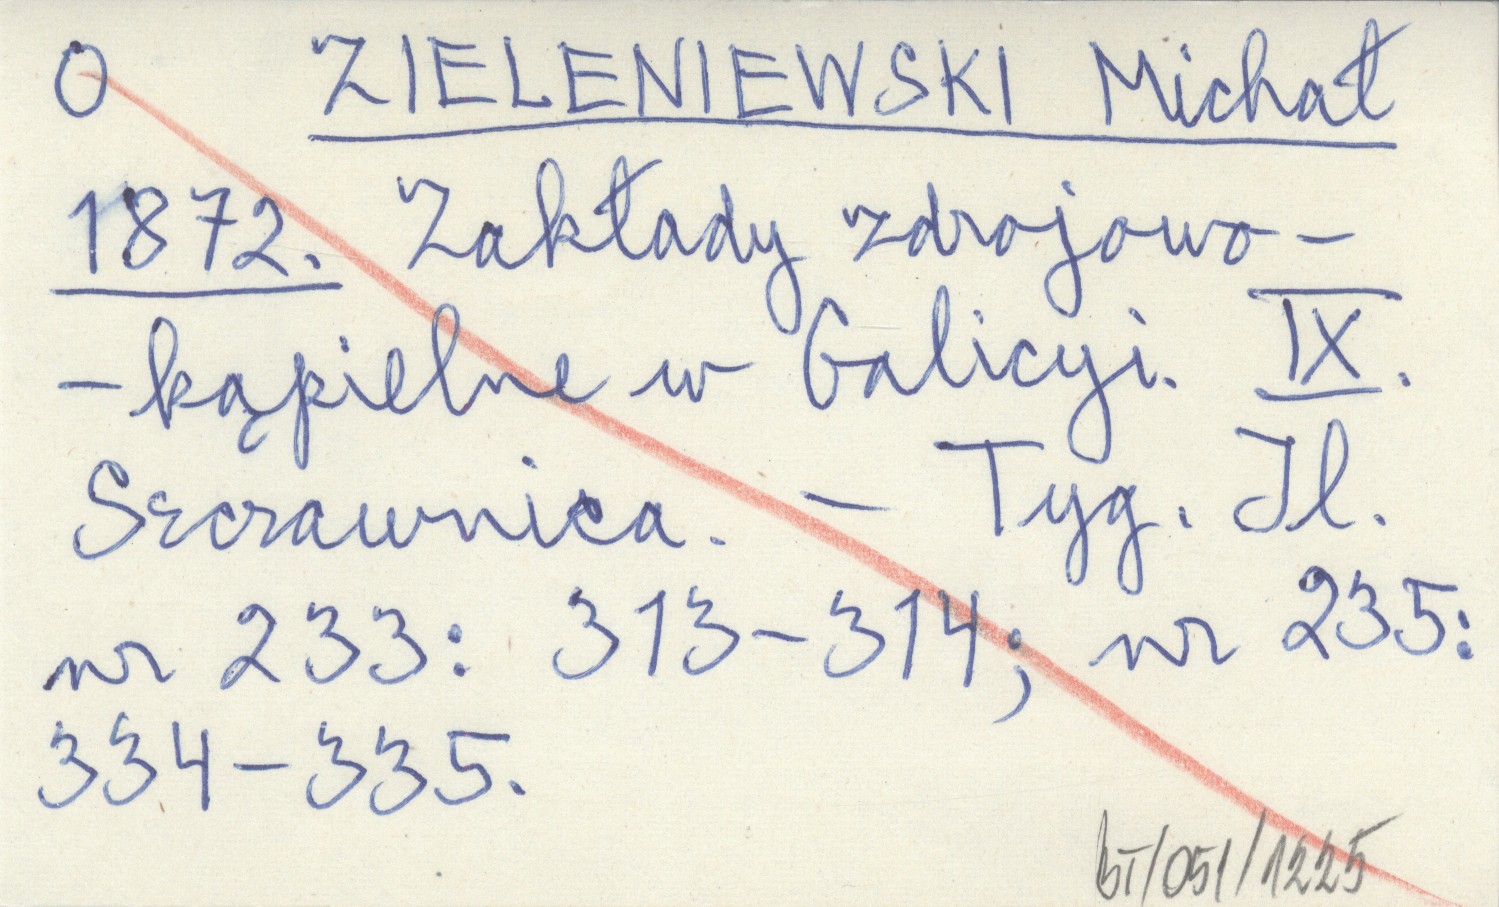 O ZIELENIEWSKI Michał
1872. Zakłady zdrojowo-
-kąpielne w Galicyi. IX.
Szczawnica. - Tyg. Il.
nr 233: 313-314; nr 235:
334-335.
bT/051/1225